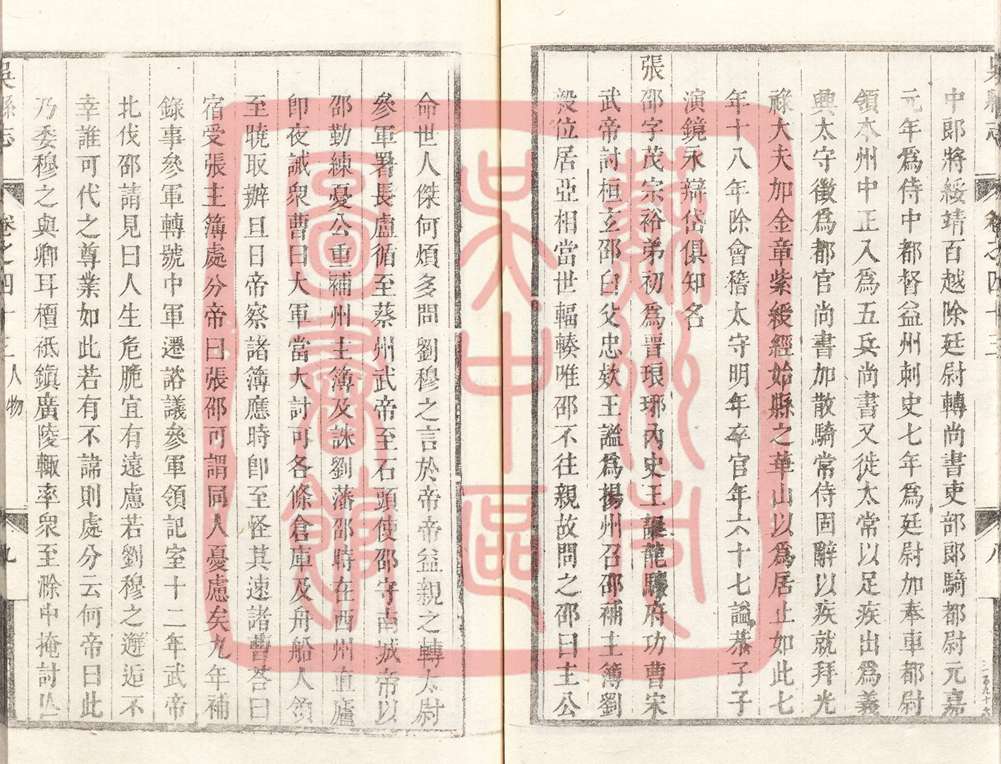 吳縣志 卷之四十三 八
中郎將綏靖百越除廷尉轉尚書吏部郎騎都尉元嘉
元年爲侍中都督益州刺史七年爲廷尉加奉車都尉
領本州中正入爲五兵尚書又徙太常以足疾出爲義
興太守徵爲都官尚書加散騎常侍固辭以疾就拜光
祿大夫加金章紫綬經始縣之華山以爲居止如此七
年十八年除會稽太守明年卒官年六十七謚恭子子
演鏡永辯岱俱知名
張邵字茂宗裕弟初爲晉琅琊內史王龍驤府功曹宋
武帝討桓玄邵白父忠欵王謐爲揚州召邵補主簿劉
毅位居亞相當世輻輳唯邵不往親故問之邵曰主公
命世人傑何煩多問劉穆之言於帝帝益親之轉太尉
參軍署長盧循至蔡州武帝至石頭使邵守南城帝以
邵勤練憂公重補州主簿及誅劉藩邵時在西州直廬
卽夜誡衆曹曰大軍當大討可各條倉庫及舟船人領
至曉取辦旦日帝察諸簿應時卽至怪其速諸曹荅曰
宿受張主簿處分帝曰張邵可謂同人憂慮矣九年補
錄事參軍轉號中軍遷諮議參軍領記室十二年武帝
北伐邵請見曰人生危脆宜有遠慮若劉穆之邂逅不
幸誰可代之尊業如此若有不諱則處分云何帝曰此
乃委穆之與卿耳檀祗鎮廣陵輒率衆至滁中掩討
吳縣志 卷之四十三 人物 九
蘇州市
吳中區
圖書館